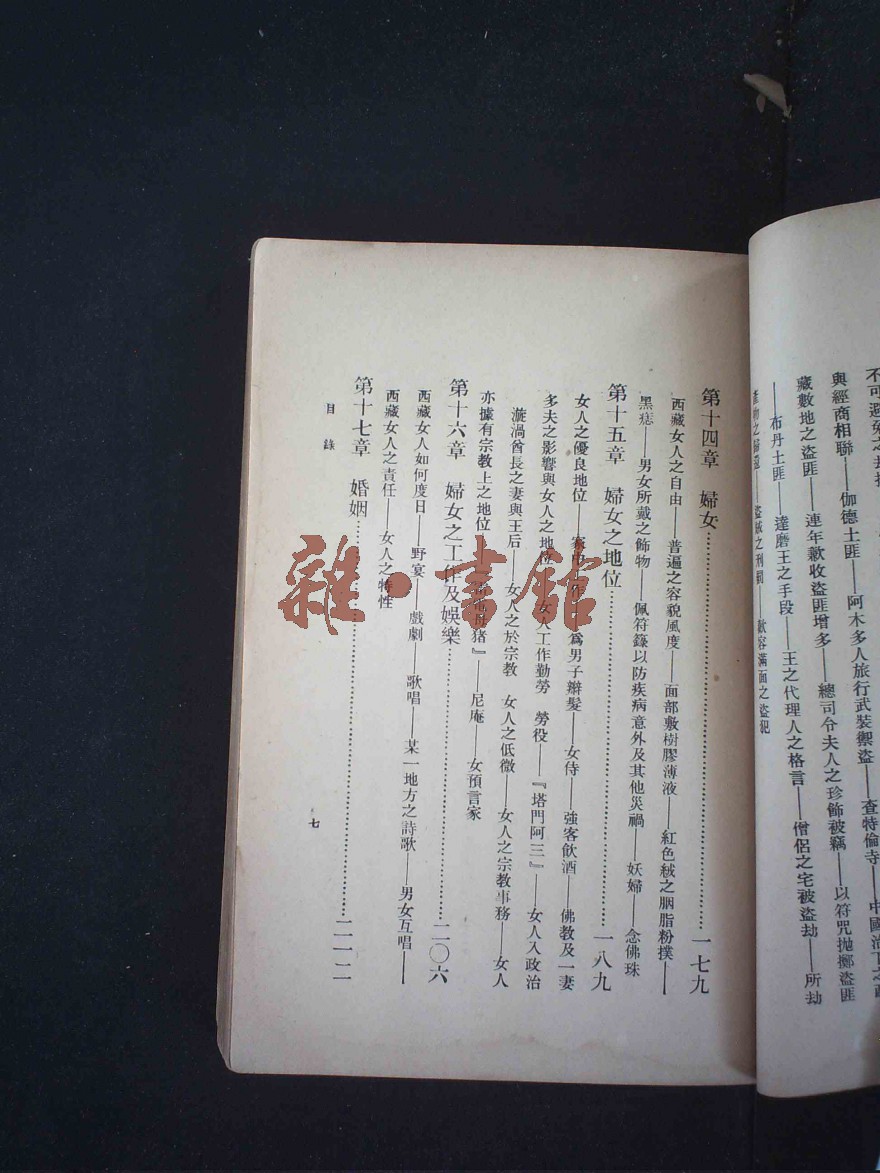 不可避免之去
與經商相聯——伽德土匪——阿木多人旅行武裝禦盜——查特倫寺——中國治下之
藏數地之盜匪——連年歉收盜匪增多——總司令夫人之珍飾被竊——以符咒拋擲盜匪
——布丹土匪——達磨王之手段——王之代理人之格言——僧侶之宅被盜劫——所劫
物之歸還——盜賊之刑罰——歡容滿面之盜犯
第十四章 婦女……一七九
西藏女人之自由——普遍之容貌風度——面部敷樹膠薄液——紅色絨之胭脂粉撲——
黑痣——男女所戴之飾物——佩符籙以防疾病意外及其他災禍——妖婦——念佛珠
第十五章 婦女之地位……一八九
女人之優良地位——為男子辮髮——女侍——強客飲酒——佛教及一妻
多夫之影響與女人之地位——女人工作勤勞 勞役——『塔門阿三』——女人入政治
漩渦酋長之妻與王后——女人之於宗教 女人之低微——女人之宗教事務——女人
亦據有宗教上之地位——母猪』——尼庵——女預言家
第十六章 婦女之工作及娛樂……二〇六
西藏女人如何度日——野宴——戲劇——歌唱——某一地方之詩歌——男女互唱——
西藏女人之責任——女人之特性
第十七章 婚姻……二一二
目錄
七
雜·書館